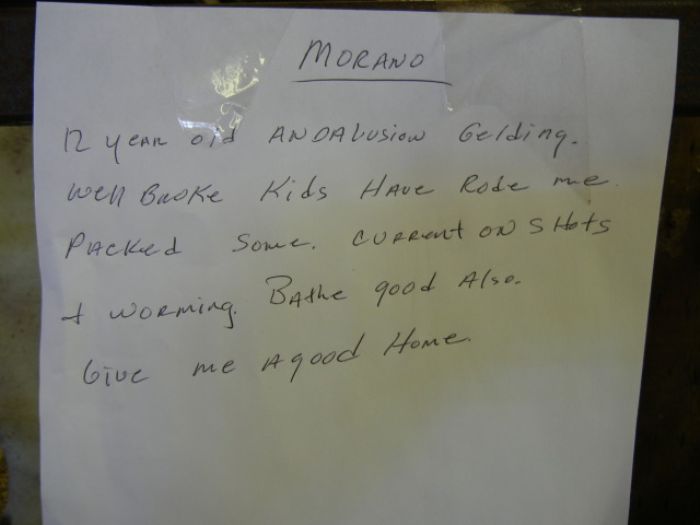 MORANO
12 year old ANDALUSION Gelding.
Well BROKE Kids HAVE Rode me.
PACKed Some. CURRENT ON SHots
+ WORMing. BAthe good Also.
Give me A good Home.